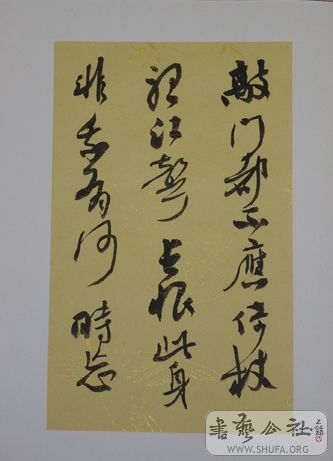 敲門都不應倚杖
聽江聲長恨此身
非我有何時忘
書藝公社
WWW.SHUFA.ORG